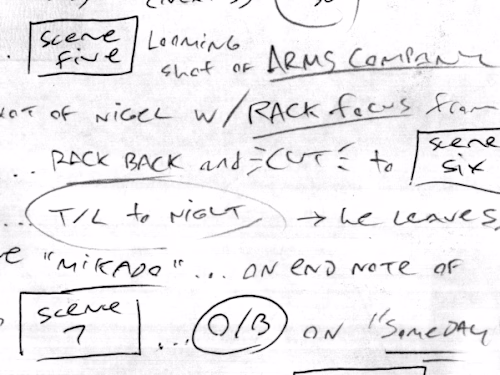 scene five Looming shot of ARMS COMPANY
OF NIGEL W/ RACK focus from
.. RACK BACK and CUT to scene six
... T/L to NIGHT → he leaves,
"MIKADO" ... ON END NOTE OF
scene 7 ... O/B ON "SOMEDAY"